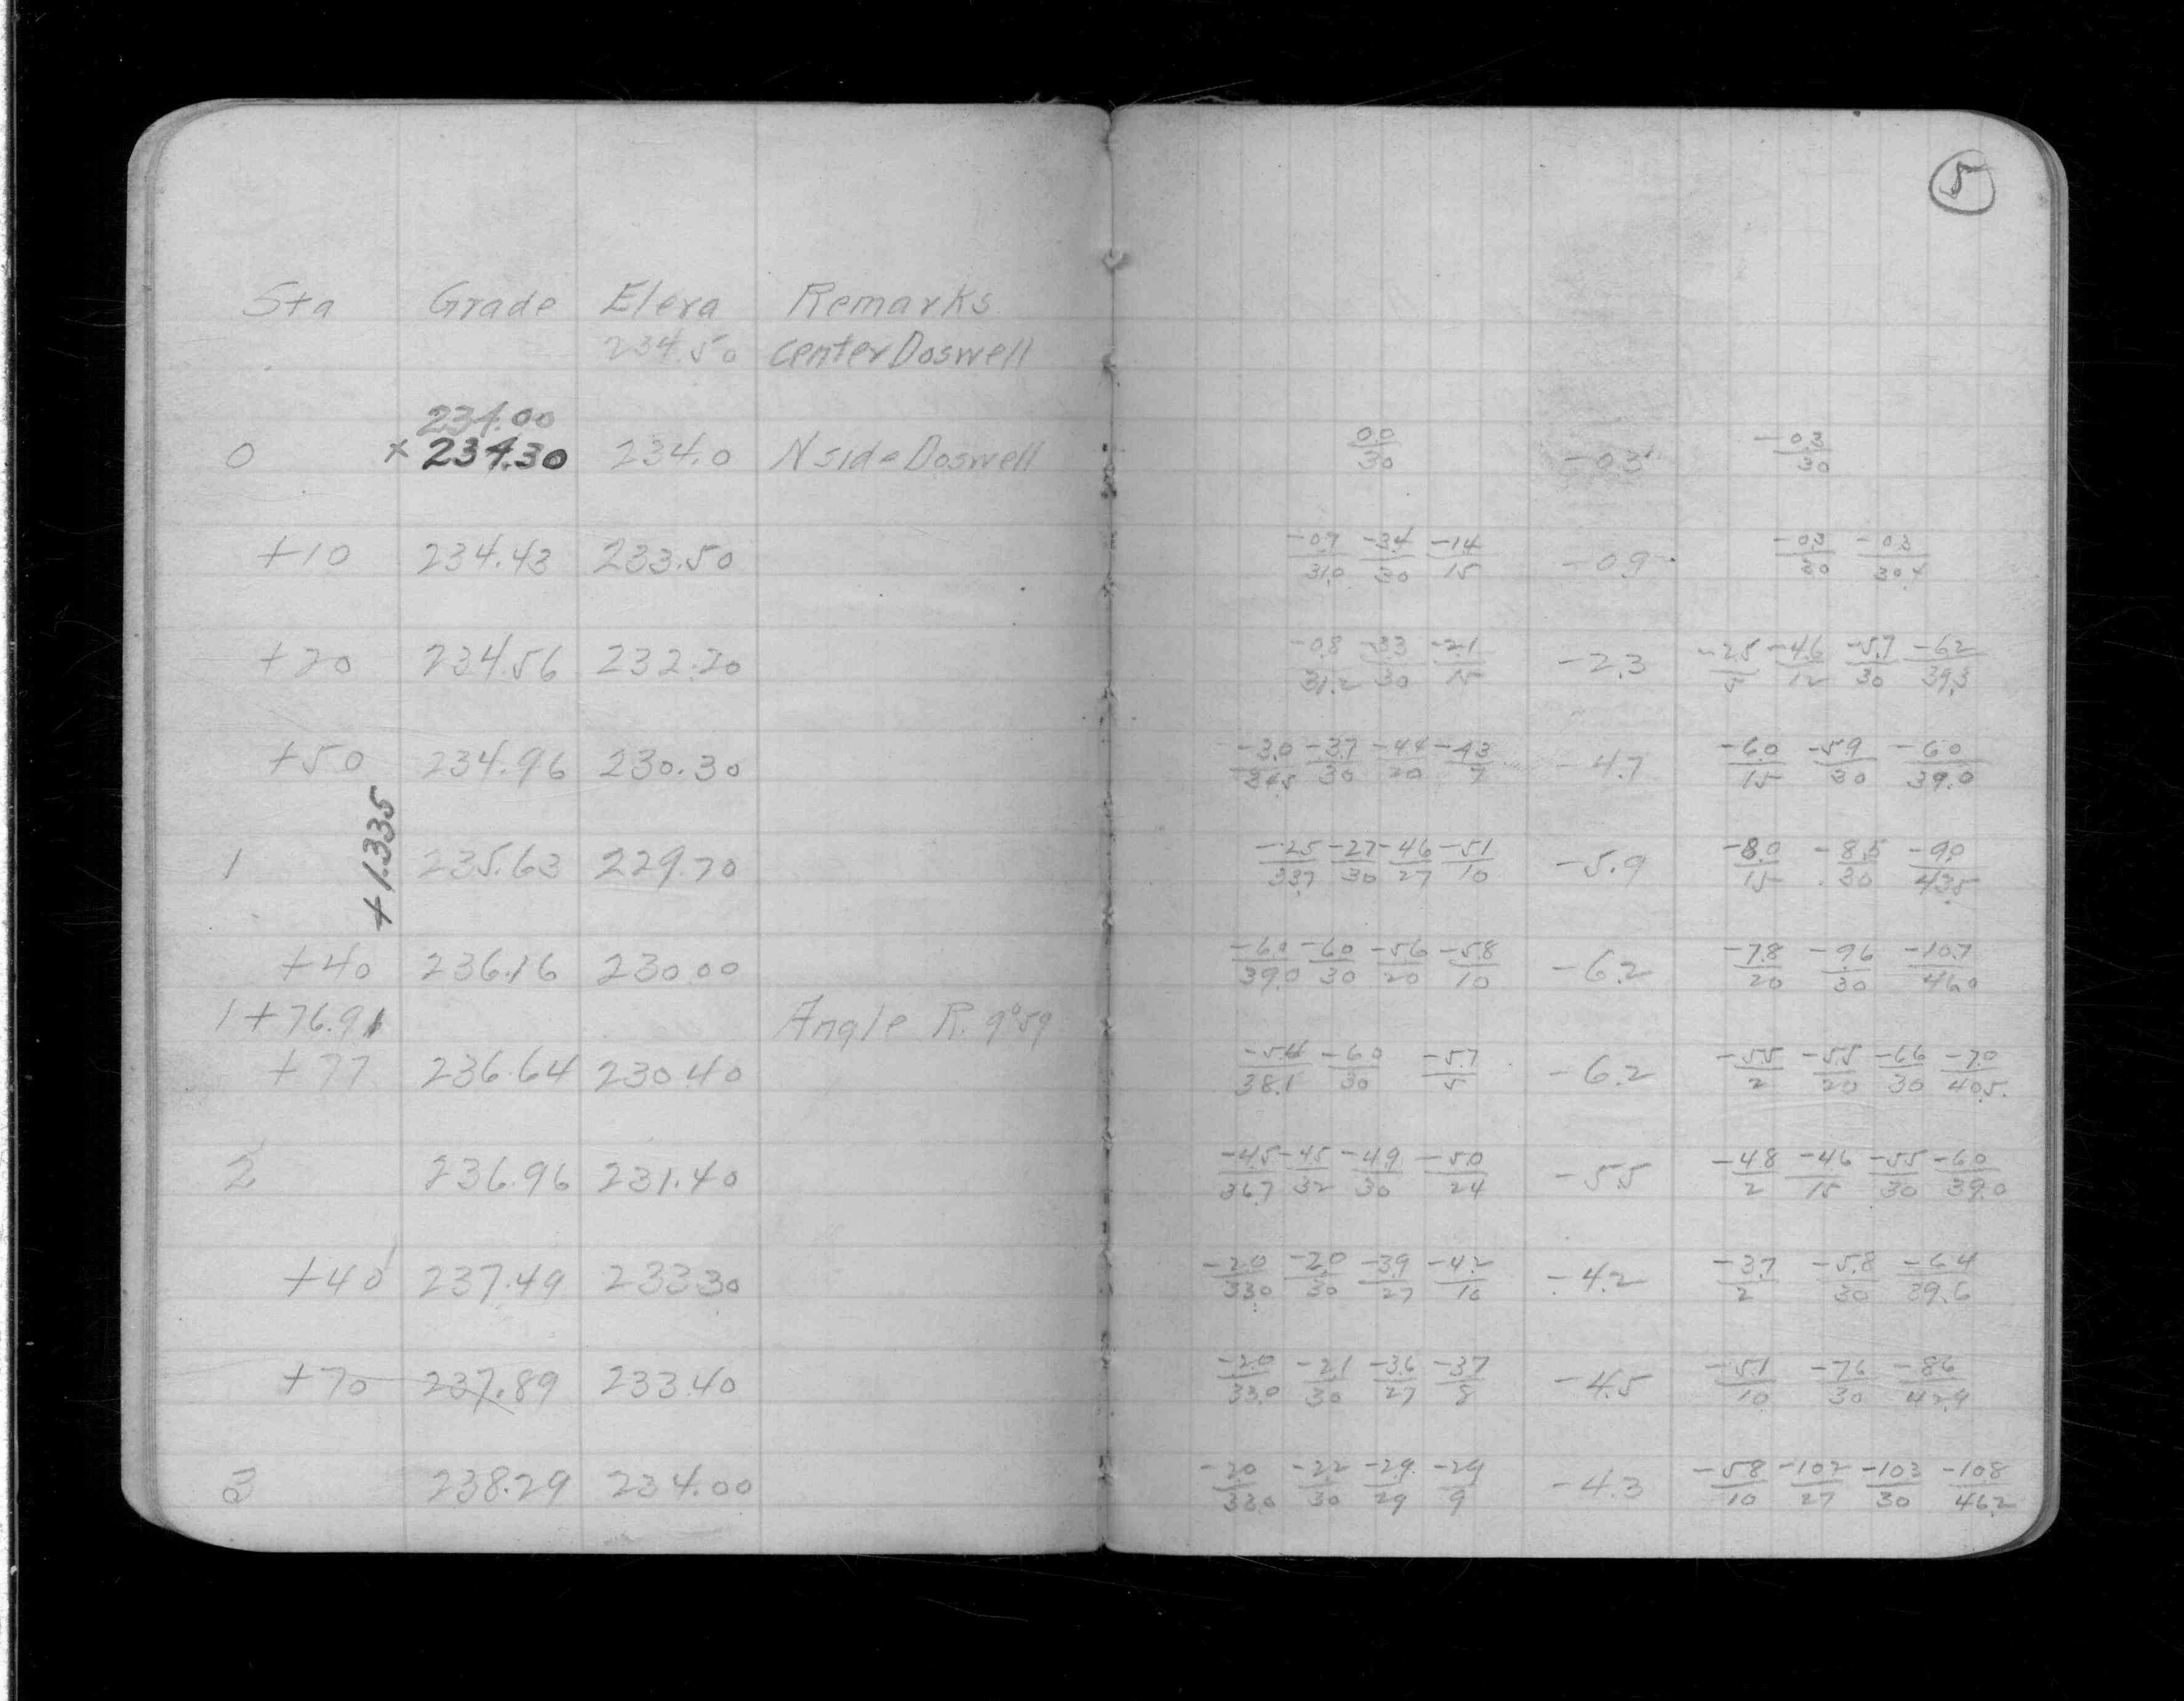 5
Sta Grade Eleva Remarks
234.50 center Doswell
234.00
0 x 234.30 234.0 N side Doswell 00/30 -0.3 -0.3/30
+10 234.43 233.50 -0.9/31.0 -3.4/30 -1.4/15 -0.9 -0.3/30 -0.3/30.4
+20 234.56 232.20 -0.8/31.2 -3.3/30 -2.1/15 -2.3 -2.5/5 -4.6/12 -5.7/30 -6.2/39.3
+50 234.96 230.30 -3.0/34.5 -3.7/30 -4.4/20 -4.3/7 -4.7 -6.0/15 -5.9/30 -6.0/39.0
+1.335
1 235.63 229.70 -2.5/33.7 -2.7/30 -4.6/27 -5.1/10 -5.9 -8.0/15 -8.5/30 -9.0/43.5
+40 236.16 230.00 -6.0/39.0 -6.0/30 -5.6/20 -5.8/10 -6.2 -7.8/20 -9.6/30 -10.7/46.0
1+76.91 Angle R. 9°59
+77 236.64 230.40 -5.4/38.1 -6.0/30 -5.7/5 -6.2 -5.5/2 -5.5/20 -6.6/30 -7.0/40.5
2 236.96 231.40 -4.5/36.7 -4.5/32 -4.9/30 -5.0/24 -5.5 -4.8/2 -4.6/15 -5.5/30 -6.0/39.0
+40 237.49 233.30 -2.0/33.0 -2.0/30 -3.9/27 -4.2/10 -4.2 -3.7/2 -5.8/30 -6.4/39.6
+70 237.89 233.40 -2.0/33.0 -2.1/30 -3.6/27 -3.7/8 -4.5 -5.1/10 -7.6/30 -8.6/42.9
3 238.29 234.00 -2.0/33.0 -2.2/30 -2.9/29 -2.9/9 -4.3 -5.8/10 -10.2/27 -10.3/30 -10.8/46.2